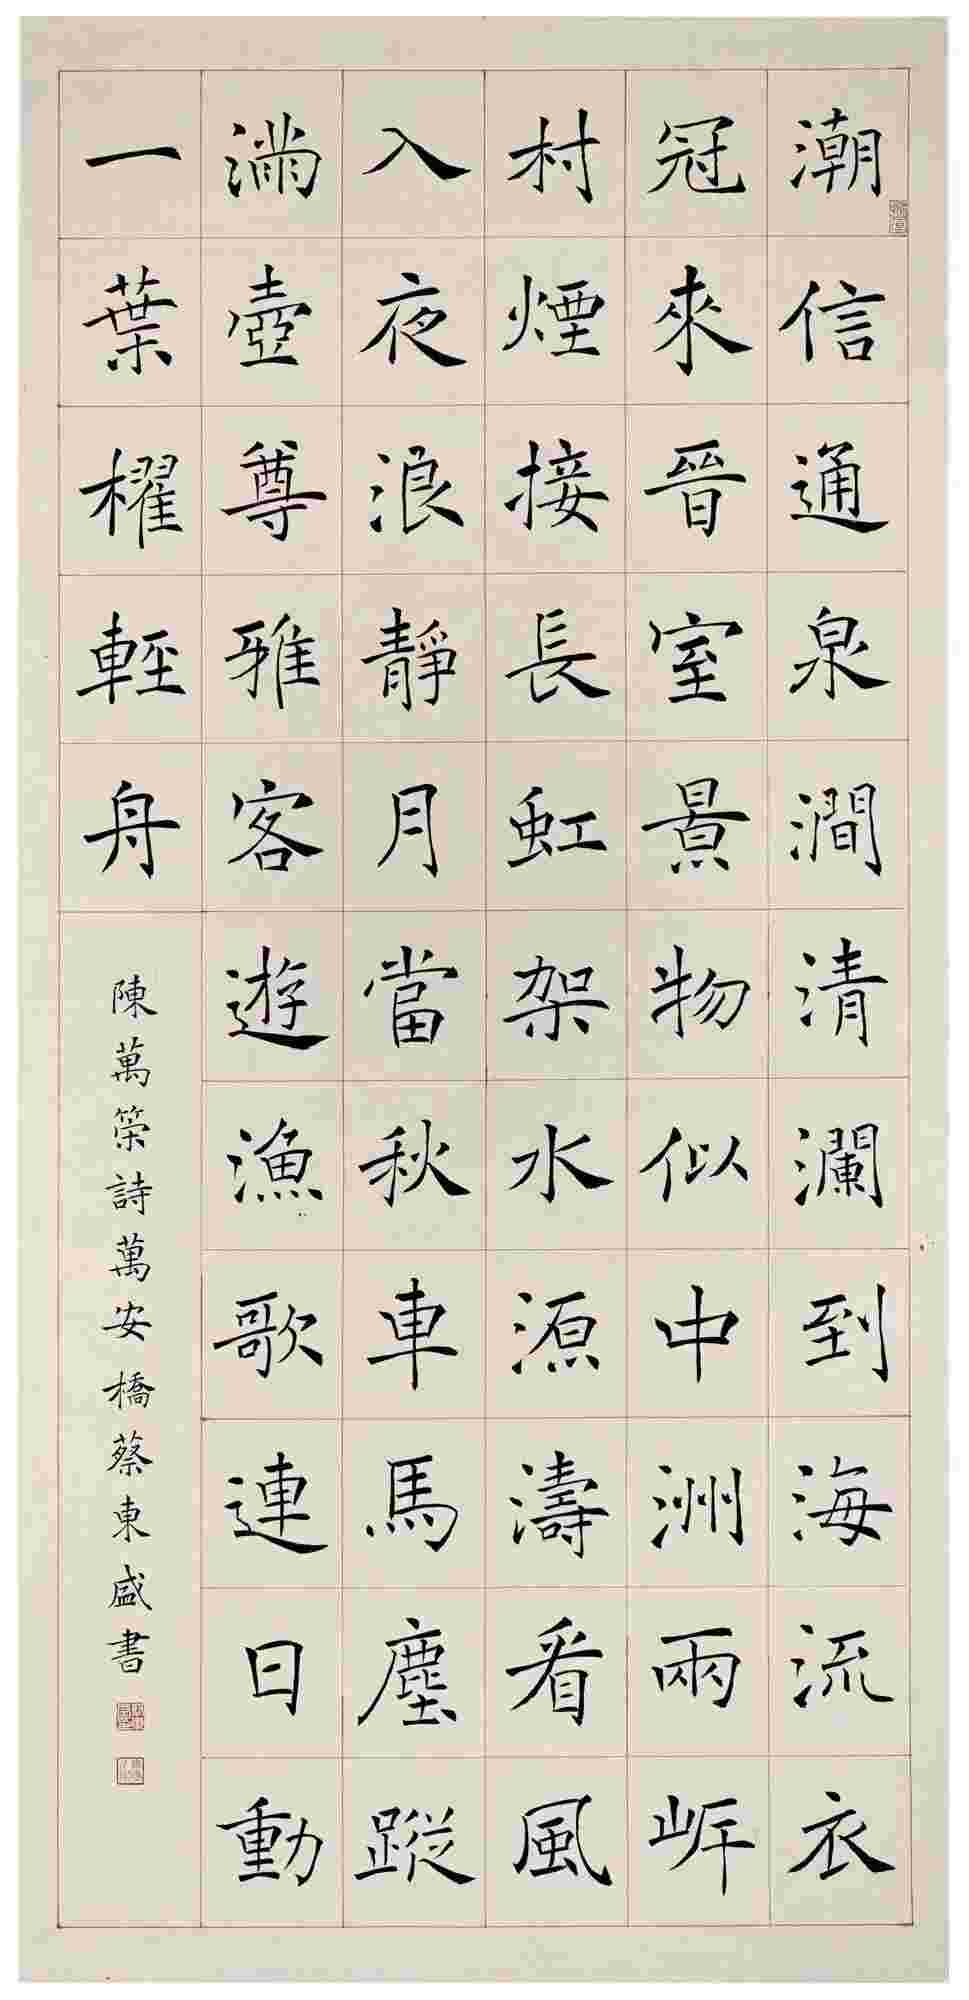 潮信通泉澗清瀾到海流衣
冠來晉室景物似中洲兩岸
村煙接長虹架水源濤看風
入夜浪靜月當秋車馬塵蹤
滿壺尊雅客遊漁歌連日動
一葉櫂輕舟
陳萬榮詩萬安橋蔡東盛書